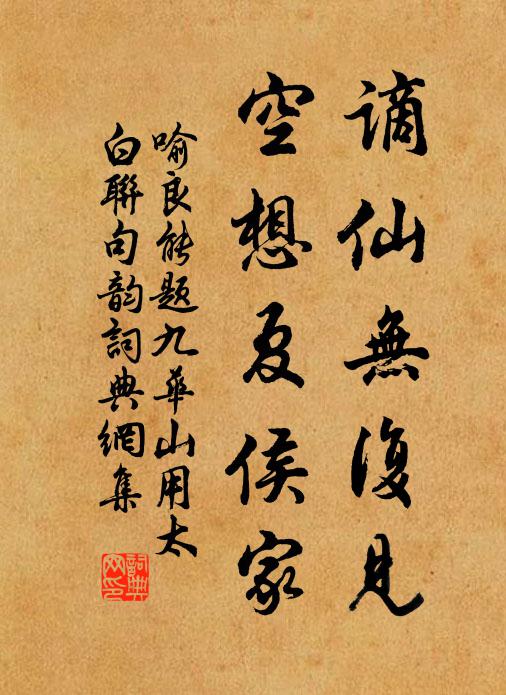 謫仙無復見
空想夏侯家
喻良能題九華山用太
白聯句韵詞典網集
詞典
网印